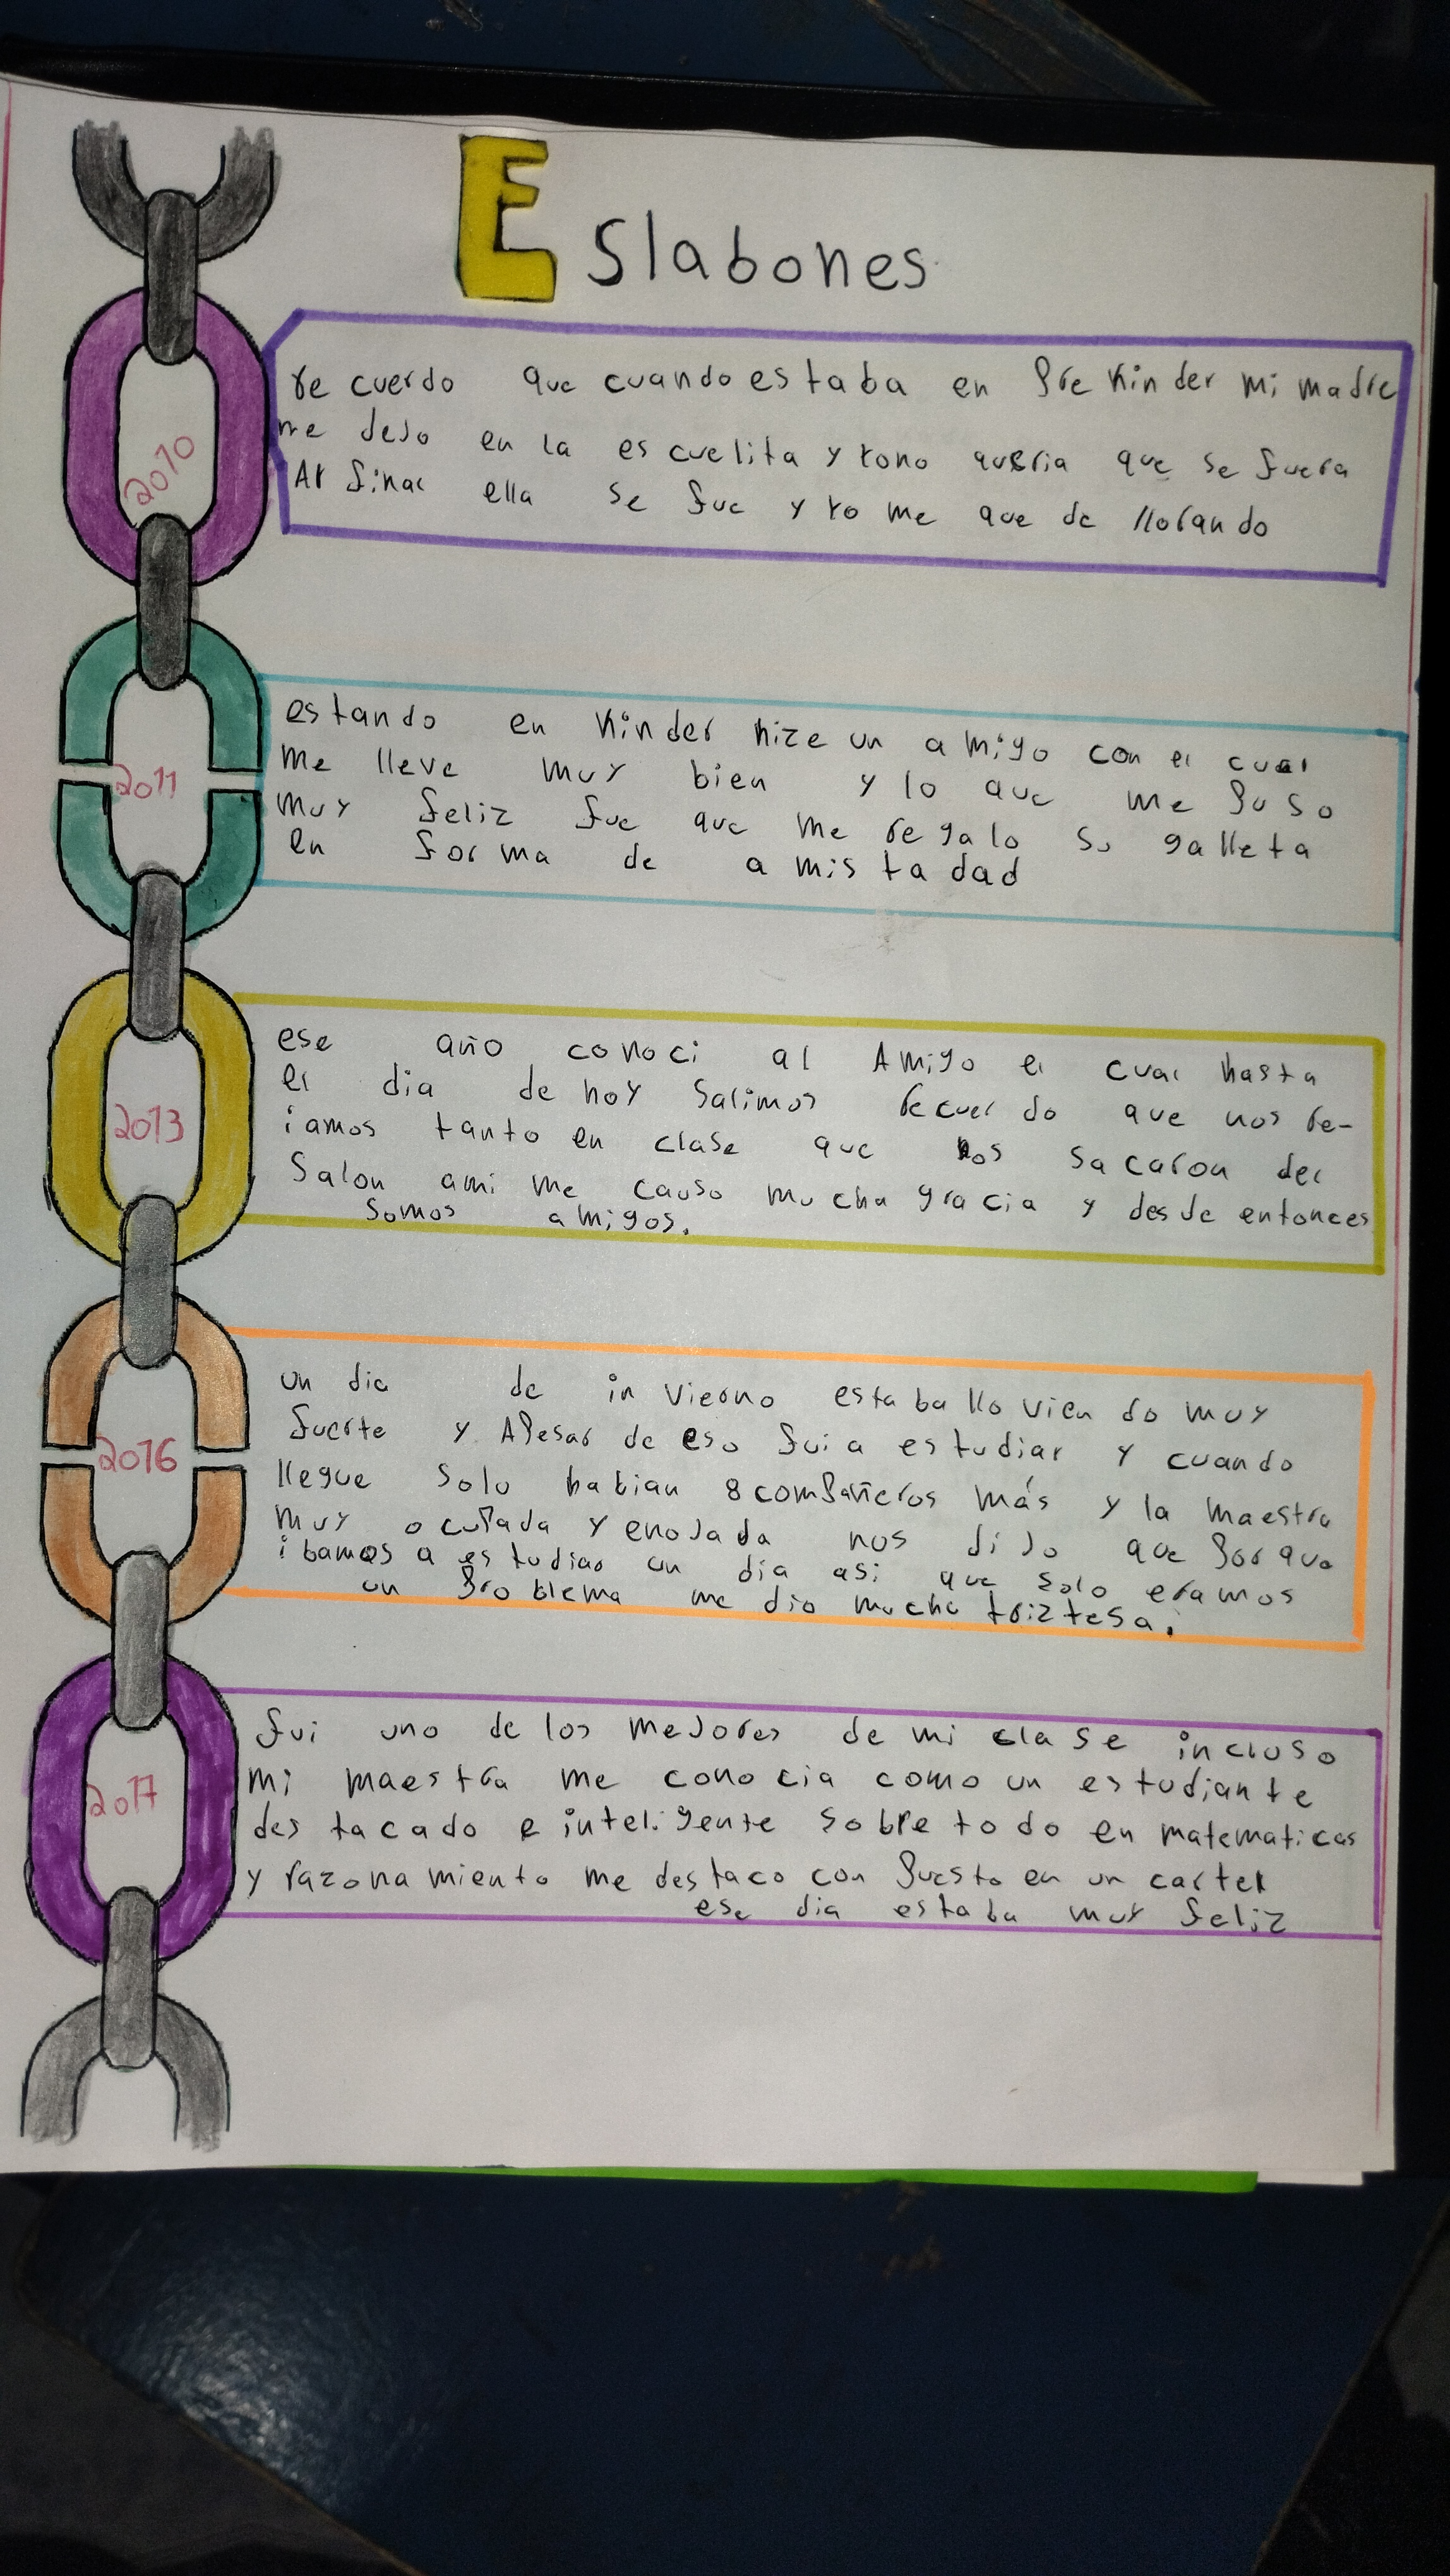 Eslabones
2010
recuerdo que cuando estaba en Prekinder mi madre
me dejo en la escuelita y yo no queria que se fuera
Al final ella se fue y yo me quede llorando
2011
estando en Kinder hize un amigo con el cual
me lleve muy bien y lo que me puso
muy feliz fue que me regalo su galleta
en forma de amistadad
2013
ese año conoci al Amigo el cual hasta
el dia de hoy salimos recuerdo que nos re-
iamos tanto en clase que nos sacaron del
salon ami me causo mucha gracia y desde entonces
somos amigos.
2016
un dia de invierno estaba lloviendo muy
fuerte y Apesar de eso fui a estudiar y cuando
llegue solo habian 8 compañeros más y la maestra
muy ocupada y enojada nos dijo que porque
ibamos a estudiar un dia asi que solo eramos
un problema me dio mucha triztesa.
2017
fui uno de los mejores de mi clase incluso
mi maestra me conocia como un estudiante
destacado e inteligente sobre todo en matematicas
y razonamiento me destaco con puesto en un cartel
ese dia estaba muy feliz